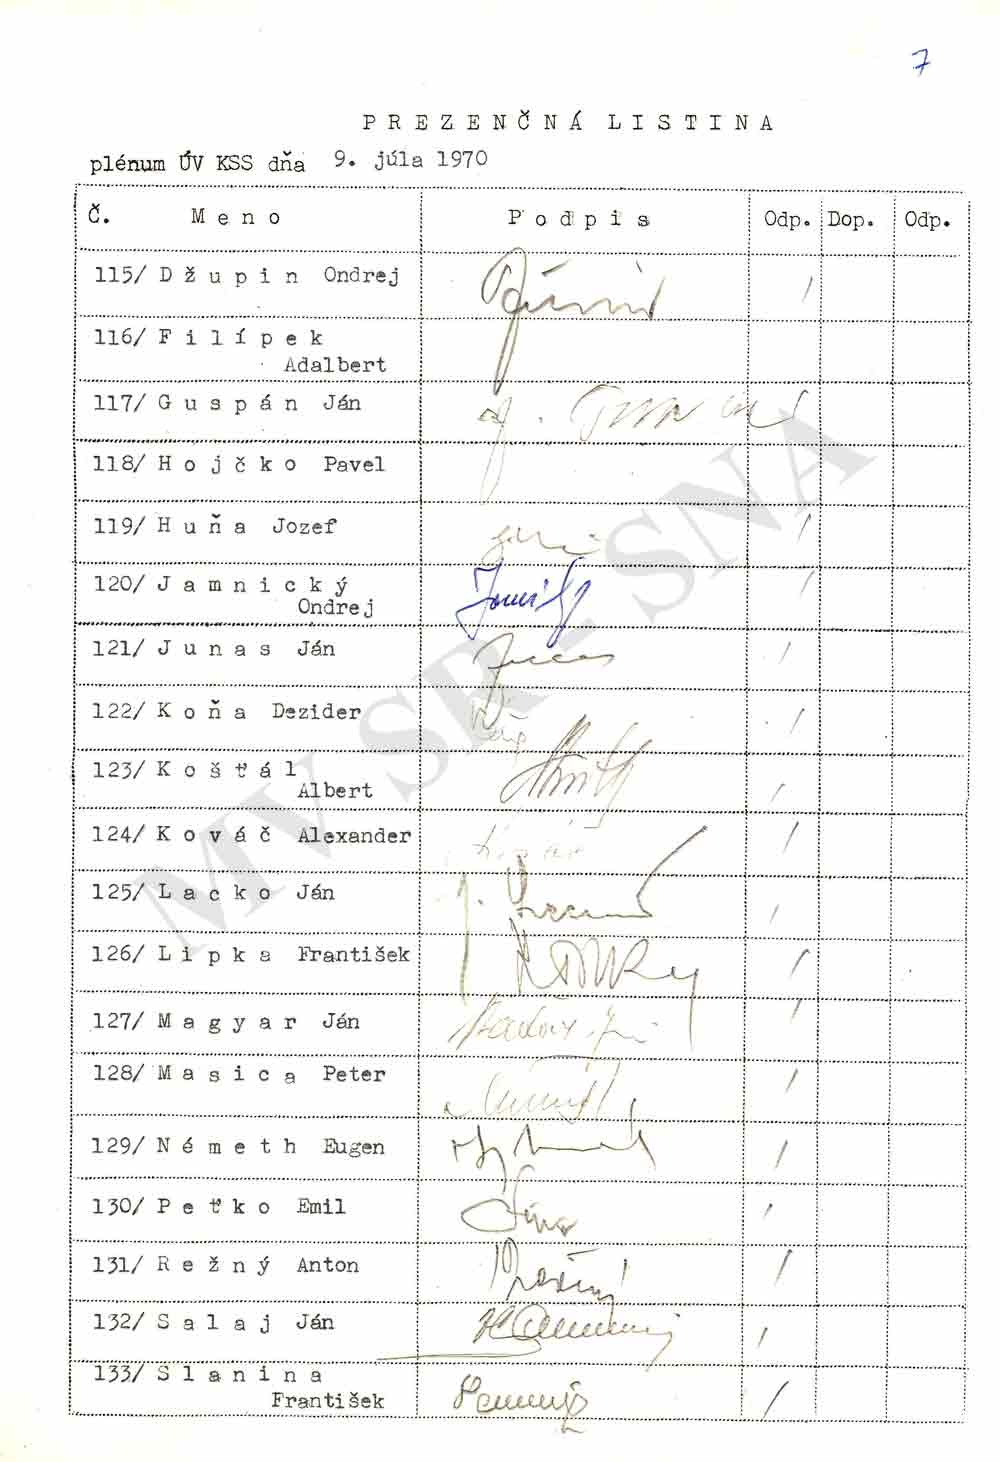 7
PREZENČNÁ LISTINA
plénum ÚV KSS dňa 9. júla 1970
Č. Meno Podpis Odp. Dop. Odp.
115/ Džupin Ondrej
116/ Filípek
Adalbert
117/ Guspán Ján
118/ Hojčko Pavel
119/ Huňa Jozef
120/ Jamnický
Ondrej
121/ Junas Ján
122/ Koňa Dezider
123/ Košťál
Albert
124/ Kováč Alexander
125/ Lacko Ján
126/ Lipka František
127/ Magyar Ján
128/ Masica Peter
129/ Németh Eugen
130/ Peťko Emil
131/ Režný Anton
132/ Salaj Ján
133/ Slanina
František
MV SR - SNA